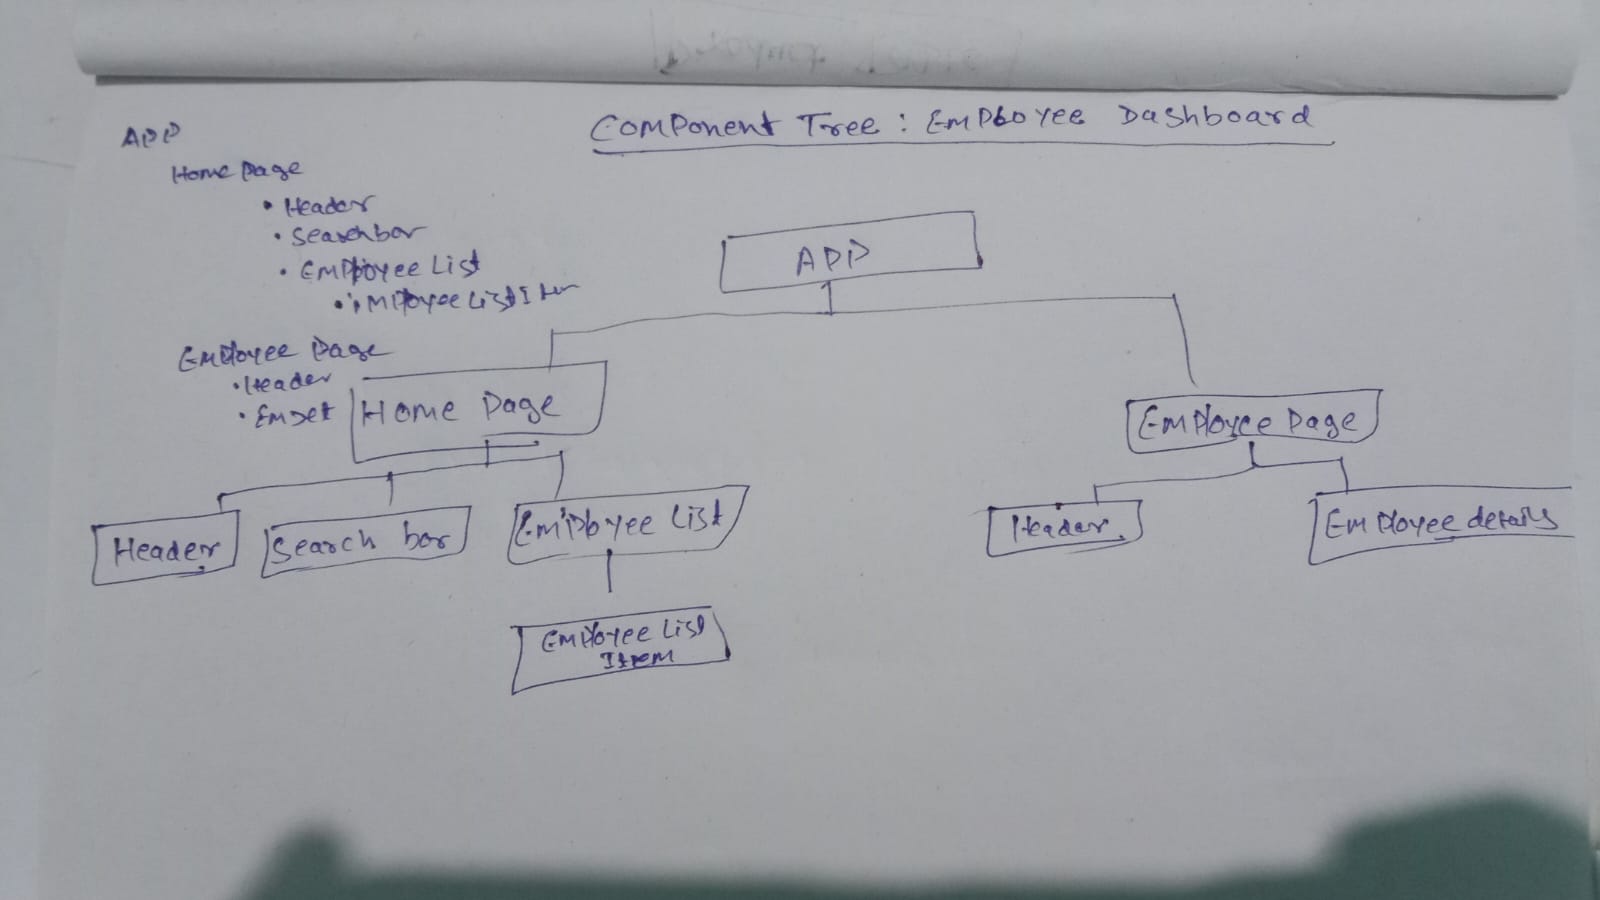 Component Tree : Employee Dashboard
App
Home page
• Header
• Searchbar
• Employee List
• Employee List Item
Employee Page
• Header
• Emdet
App
Home page
Employee page
Header
Search bar
Employee List
Header
Employee details
Employee List
Item